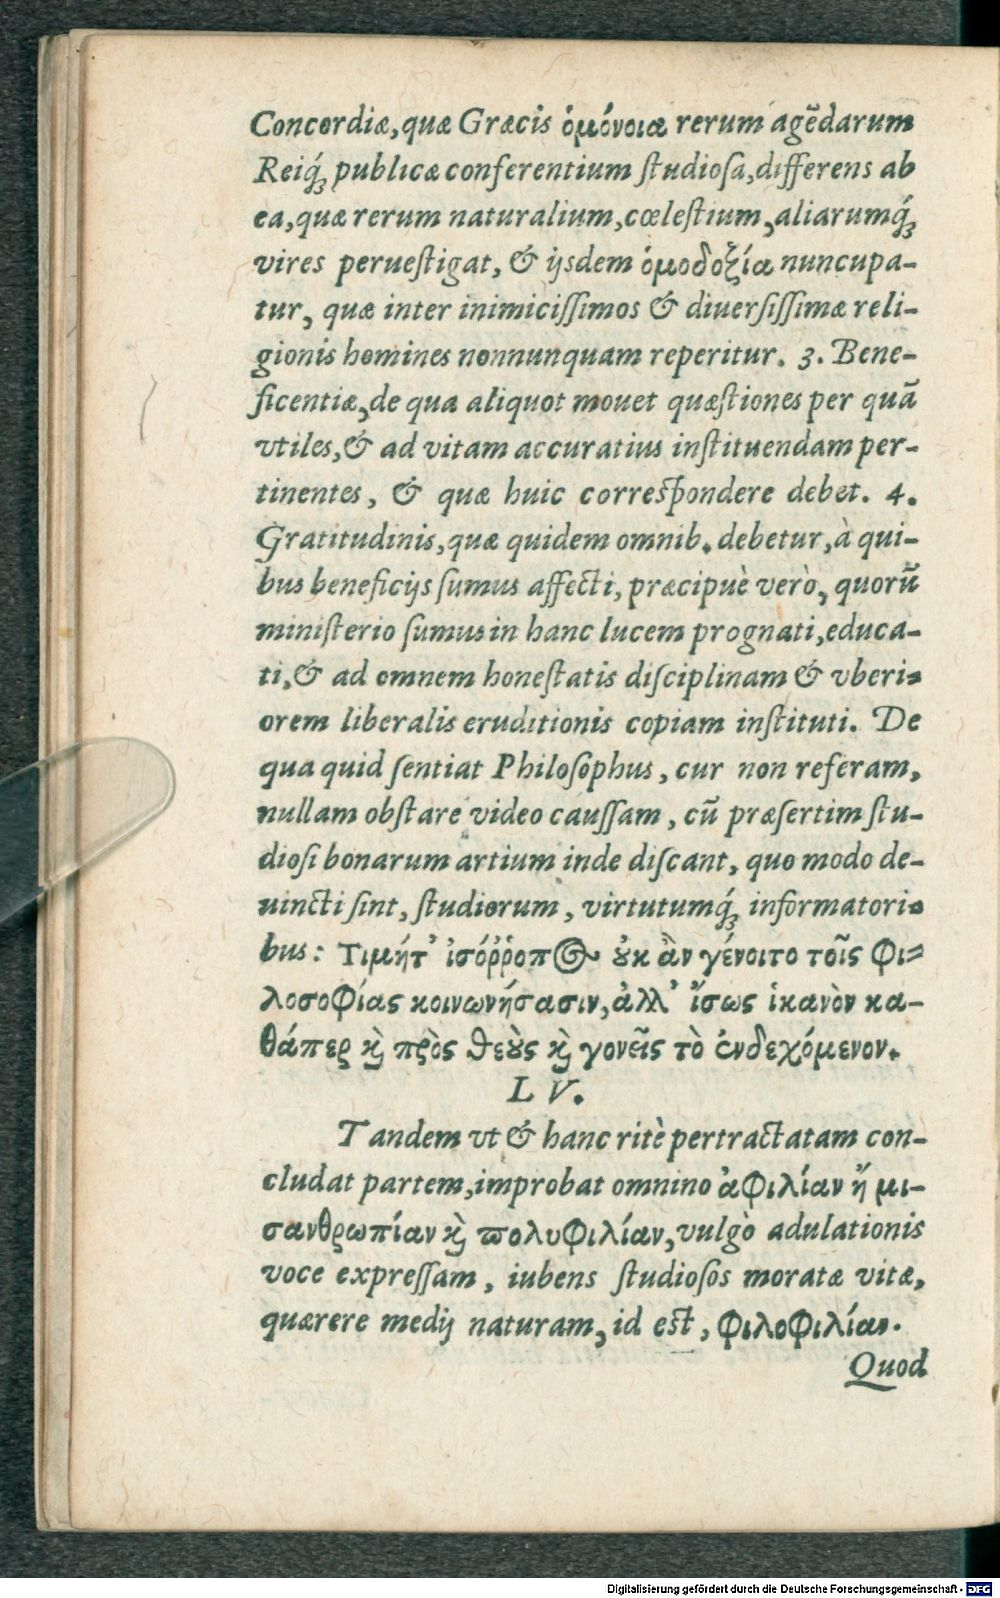 Concordiæ, quæ Græcis ὁμόνοια rerum agẽdarum
Reiq́ꝫ publicæ conferentium ſtudioſa, differens ab
ea, quæ rerum naturalium, cœleſtium, aliarumq́ꝫ
vires perueſtigat, & ijsdem ὁμοδοξία nuncupa-
tur, quæ inter inimiciſſimos & diuerſiſſimæ reli-
gionis homines nonnunquam reperitur. 3. Bene-
ficentiæ, de qua aliquot mouet quæſtiones per quã
vtiles, & ad vitam accuratius inſtituendam per-
tinentes, & quæ huic correſpondere debet. 4.
Gratitudinis, quæ quidem omnib. debetur, à qui-
bus beneficijs ſumus affecti, præcipuè verò, quorũ
miniſterio ſumus in hanc lucem prognati, educa-
ti, & ad omnem honeſtatis diſciplinam & vberi-
orem liberalis eruditionis copiam inſtituti. De
qua quid ſentiat Philoſophus, cur non referam,
nullam obſtare video cauſſam, cũ præſertim ſtu-
dioſi bonarum artium inde diſcant, quo modo de-
uincti ſint, ſtudiorum, virtutumq́ꝫ informatori-
bus: Τιμήτ᾽ ἰσόῤῥοπος οὐκ ἂν γένοιτο τοῖς φι-
λοσοφίας κοινωνήσασιν, ἀλλ᾽ ἴσως ἱκανὸν κα-
θάπερ καὶ πρὸς θεοὺς καὶ γονεῖς τὸ ἐνδεχόμενον.
LV.
Tandem vt & hanc ritè pertractatam con-
cludat partem, improbat omnino ἀφιλίαν ἤ μι-
σανθρωπίαν καὶ πολυφιλίαν, vulgò adulationis
voce expreſſam, iubens ſtudioſos moratæ vitæ,
quærere medij naturam, id eſt, φιλοφιλίαν.
Quod
Digitalisierung gefördert durch die Deutsche Forschungsgemeinschaft - DFG